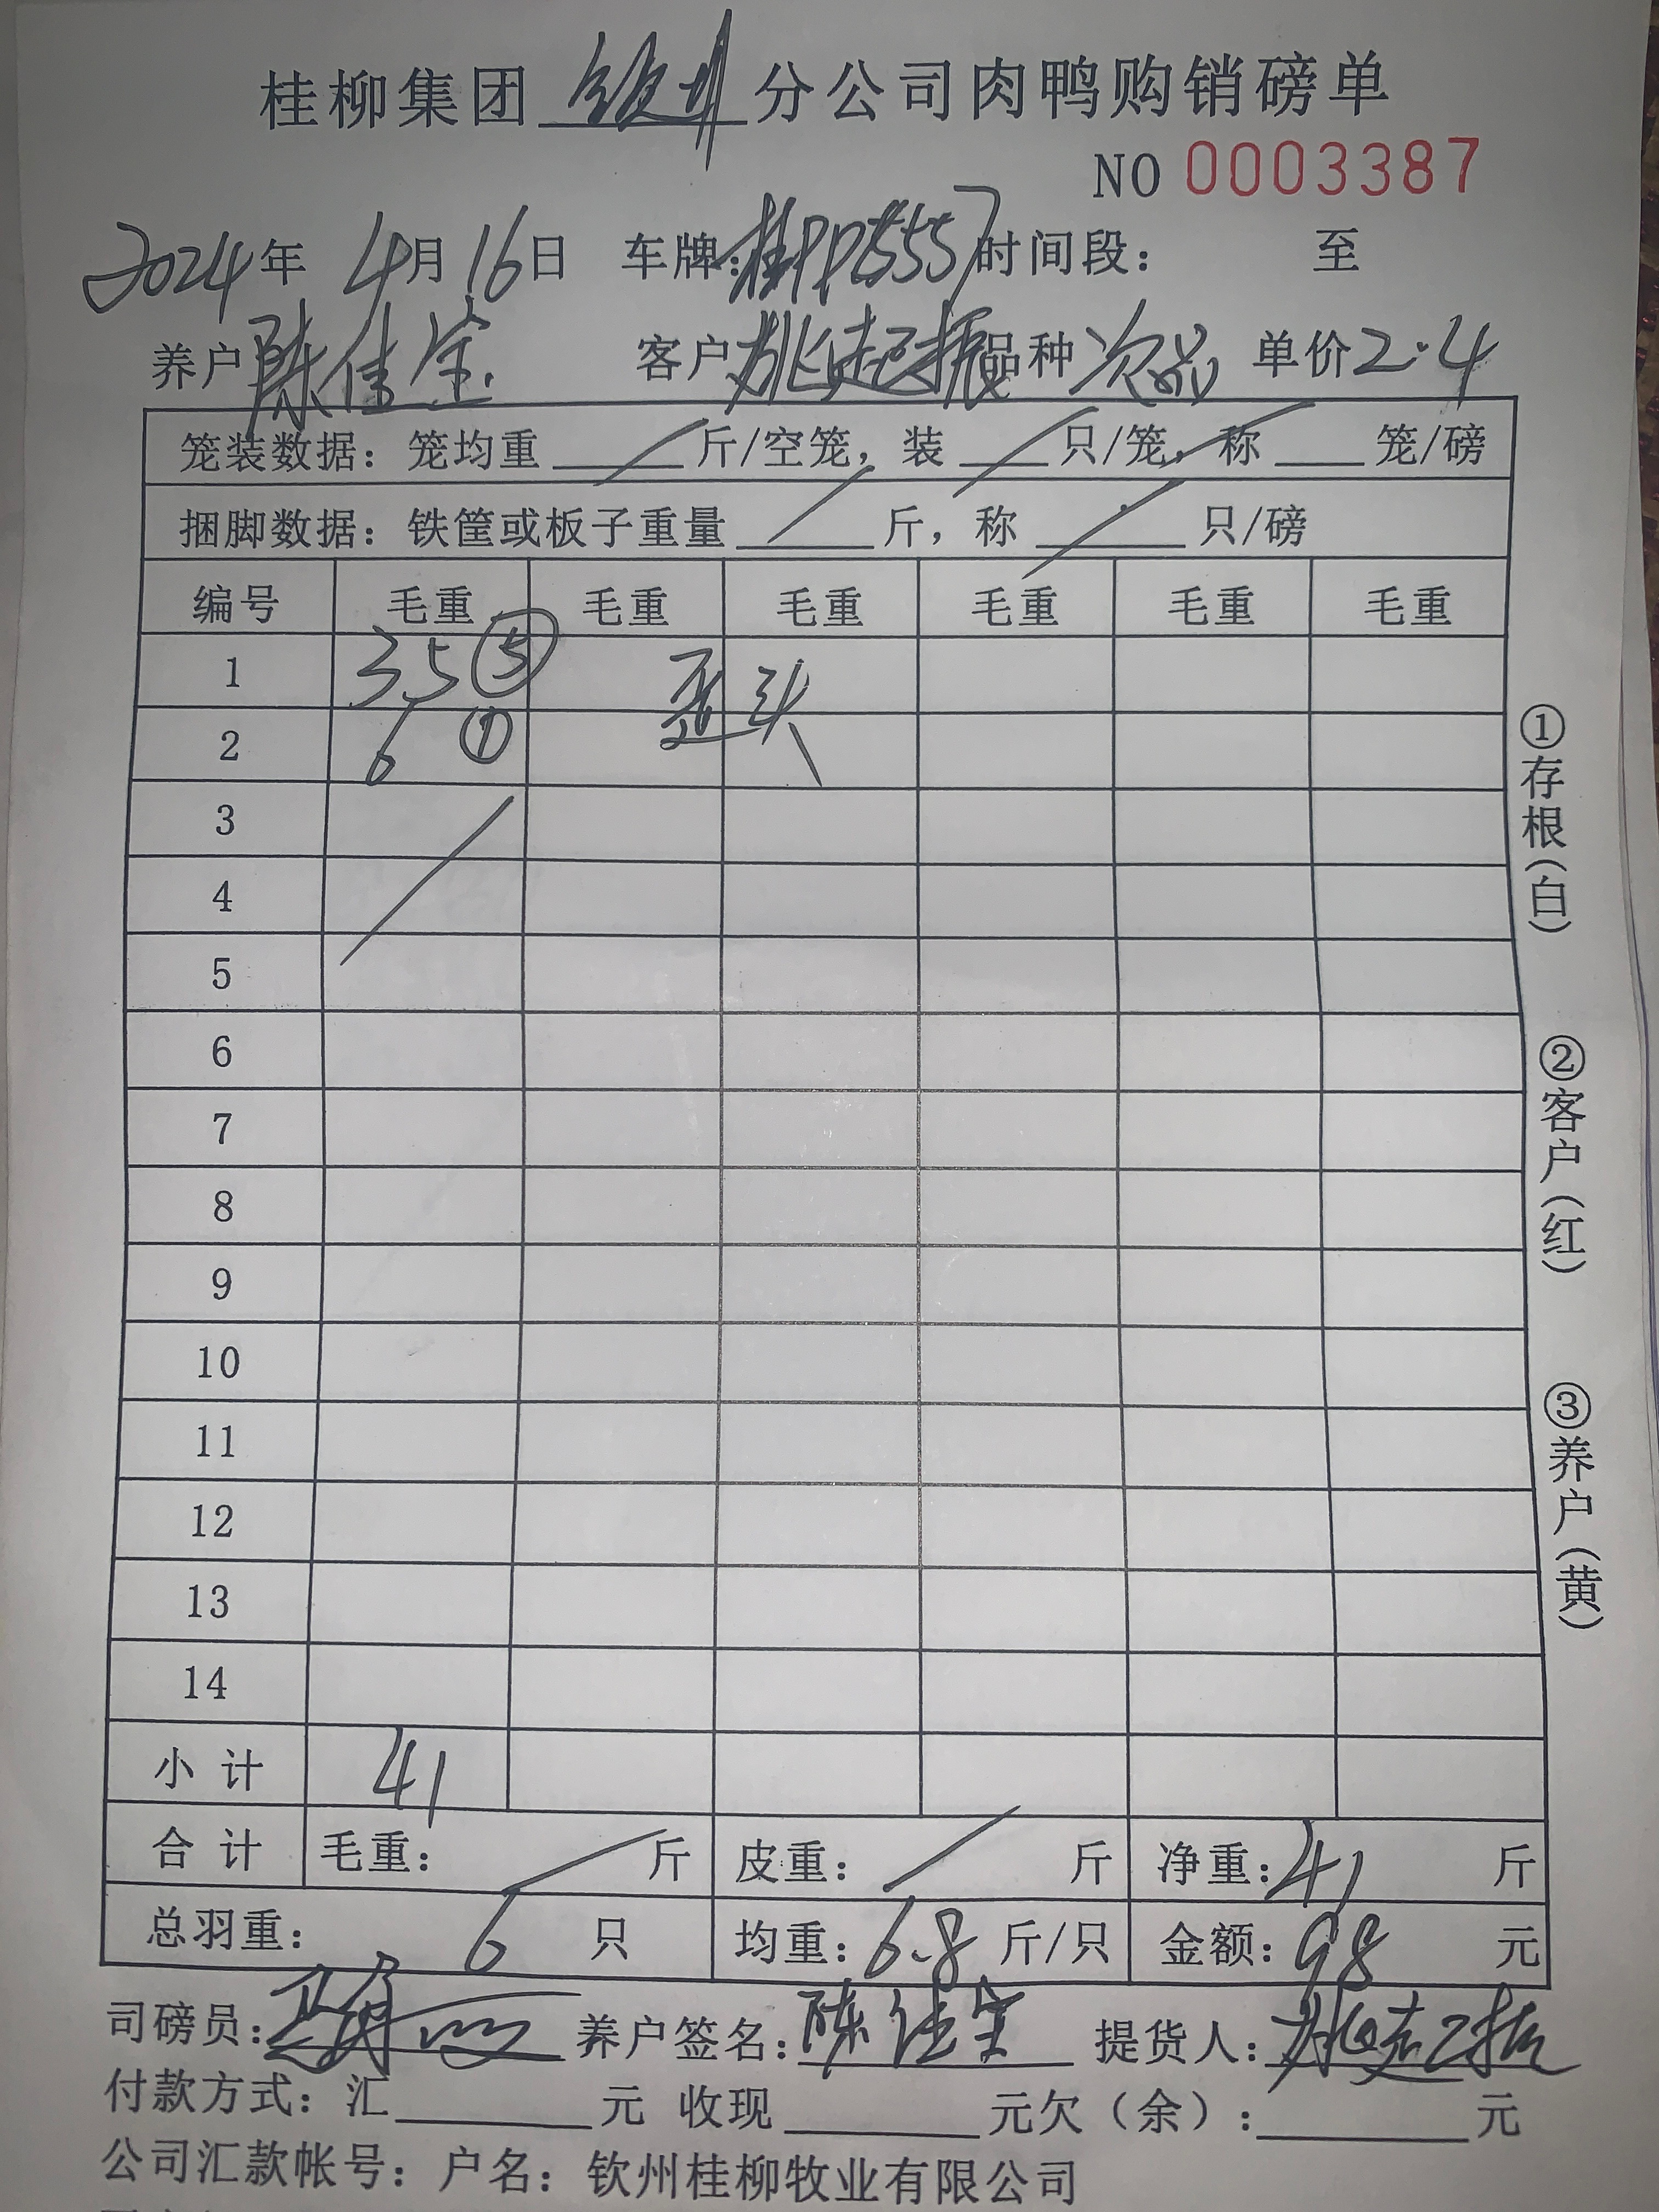 桂柳集团 钦州 分公司肉鸭购销磅单
NO 0003387
2024年 4月16日 车牌: 时间段: 至
养户 陈佳宝 客户 姚起振 品种 次品 单价 2.4
笼装数据: 笼均重 / 斤/空笼, 装 / 只/笼, 称 / 笼/磅
捆脚数据: 铁筐或板子重量 / 斤, 称 / 只/磅
编号 毛重 毛重 毛重 毛重 毛重 毛重
1 35 ⑤ 歪头
2 6 ①
3
4
5
6
7
8
9
10
11
12
13
14
小计 41
合计 毛重: / 斤 皮重: / 斤 净重: 41 斤
总羽重: 6 只 均重: 6.8 斤/只 金额: 98 元
司磅员: 养户签名: 陈佳宝 提货人: 姚起振
付款方式: 汇 元 收现 元欠(余): 元
公司汇款帐号: 户名: 钦州桂柳牧业有限公司
①存根(白)
②客户(红)
③养户(黄)